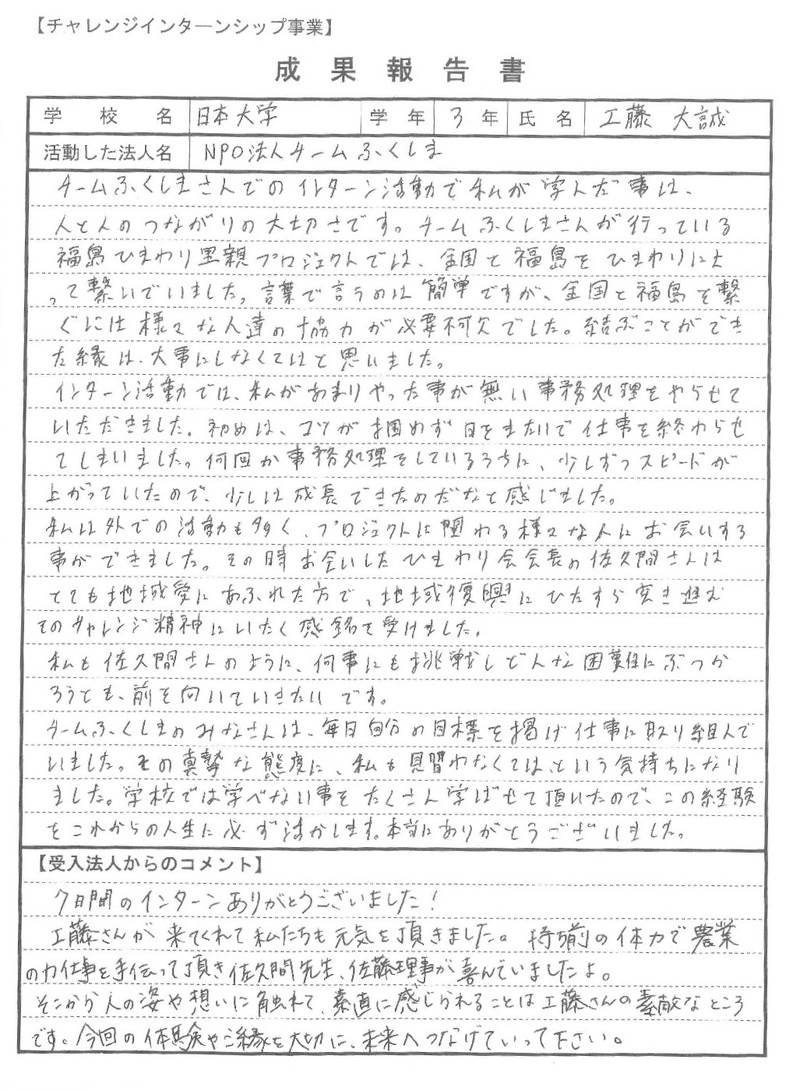 【チャレンジインターンシップ事業】
成果報告書
学校名 日本大学 学年 3年 氏名 工藤 大誠
活動した法人名 NPO法人チームふくしま
チームふくしまさんでのインターン活動で私が学んだ事は、
人と人のつながりの大切さです。チームふくしまさんが行っている
福島ひまわり里親プロジェクトでは、全国と福島をひまわりによ
って繋いでいました。言葉で言うのは簡単ですが、全国と福島を繋
ぐには様々な人達の協力が必要不可欠でした。結ぶことができ
た縁は、大事にしなくてはと思いました。
インターン活動では、私があまりやった事が無い事務処理をやらせて
いただきました。初めは、コツが掴めず日をまたいで仕事を終わらせ
てしまいました。何回か事務処理をしているうちに、少しずつスピードが
上がっていたので、少しは成長できたのだなと感じました。
私は外での活動も多く、プロジェクトに関わる様々な人にお会いする
事ができました。その時お会いしたひまわり会会長の佐久間さんは
とても地域愛にあふれた方で、地域復興にひたすら突き進む
そのチャレンジ精神にいたく感銘を受けました。
私も佐久間さんのように、何事にも挑戦しどんな困難にぶつか
ろうとも、前を向いていきたいです。
チームふくしまのみなさんは、毎日自分の目標を掲げ仕事に取り組んで
いました。その真摯な態度に、私も見習わなくては、という気持ちになり
ました。学校では学べない事をたくさん学ばせて頂いたので、この経験
をこれからの人生に必ず活かします。本当にありがとうございました。
【受入法人からのコメント】
7日間のインターンありがとうございました！
工藤さんが来てくれて私たちも元気を頂きました。持ち前の体力で農業
の力仕事を手伝って頂き佐久間先生、佐藤理事が喜んでいましたよ。
そこから人の姿や想いに触れて、素直に感じられることは工藤さんの素敵なところ
です。今回の体験やご縁を大切に、未来へつなげていって下さい。